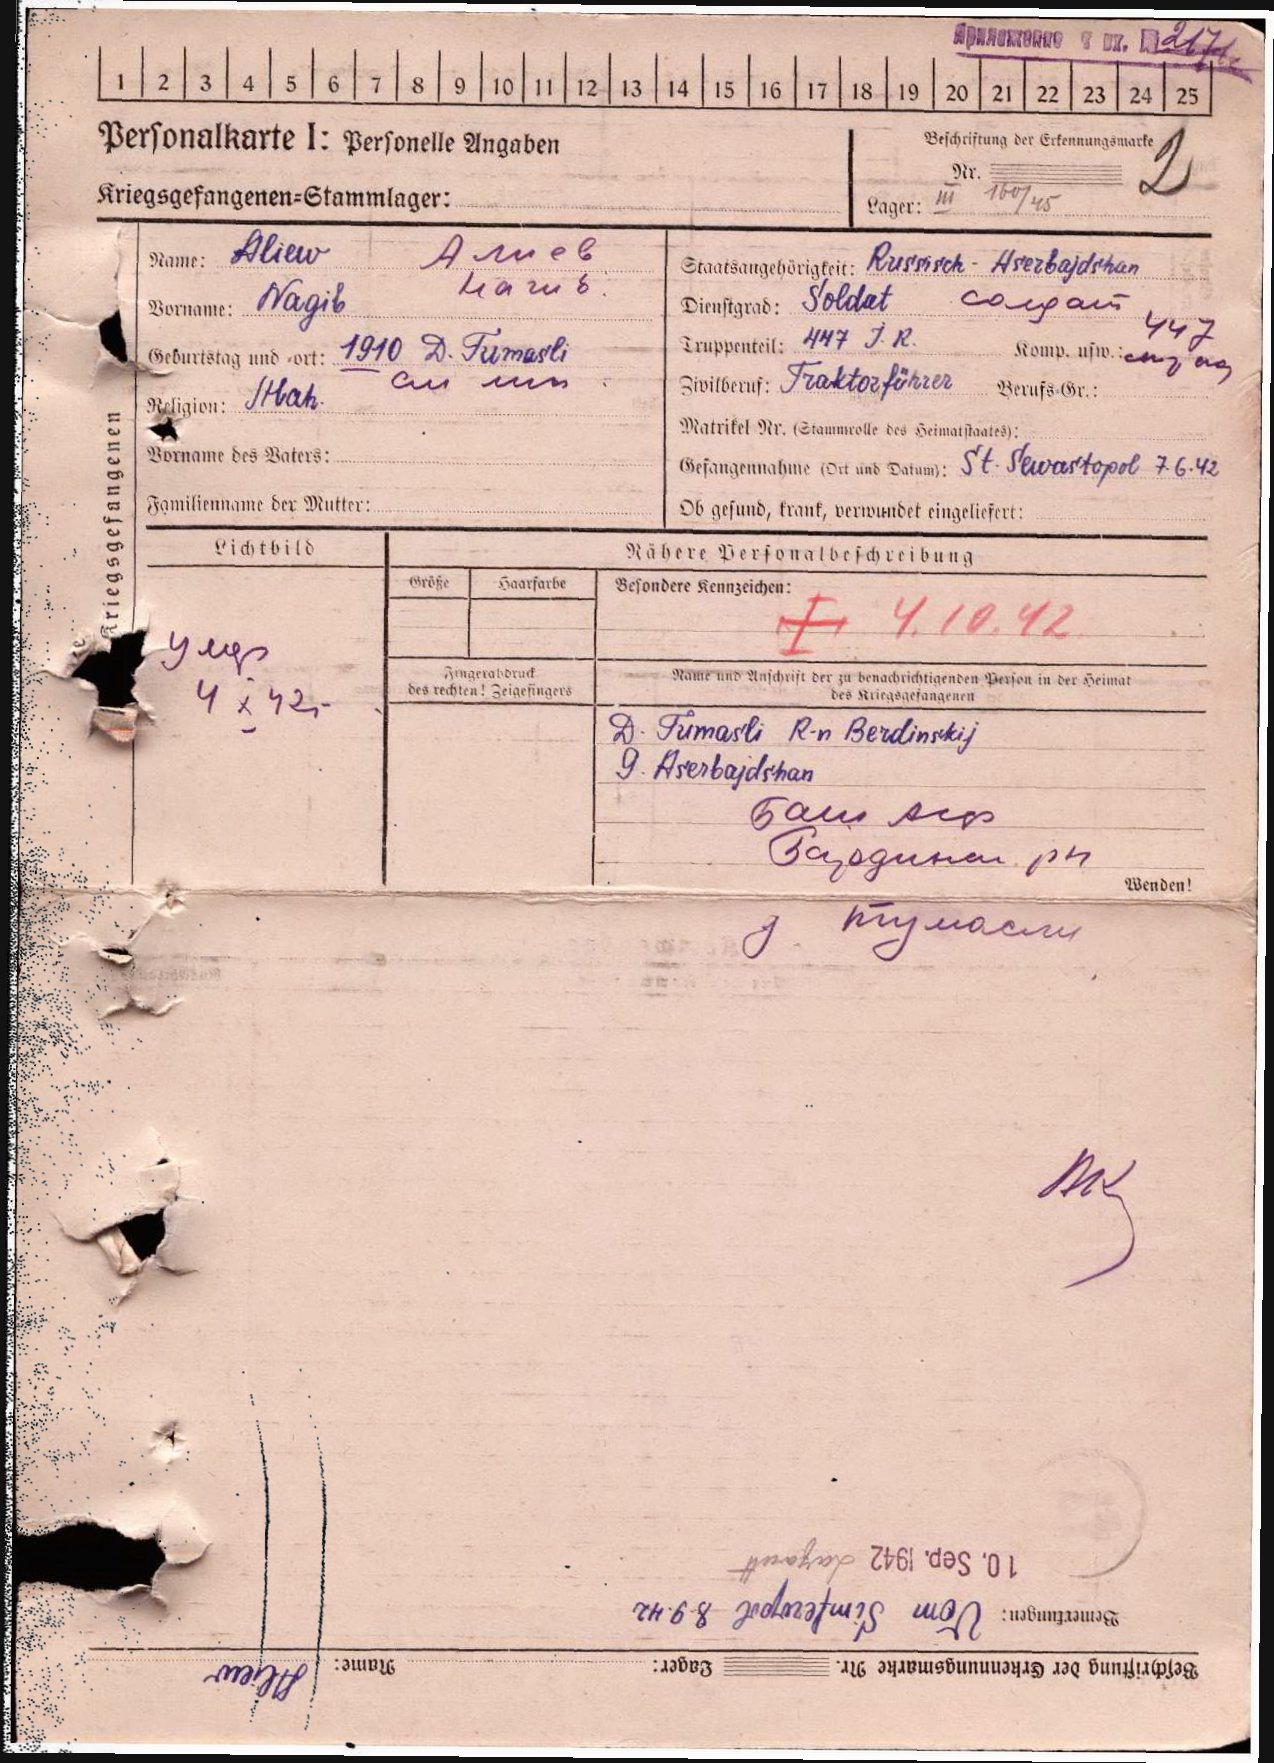 Приложение к вх. № 217
1 2 3 4 5 6 7 8 9 10 11 12 13 14 15 16 17 18 19 20 21 22 23 24 25
Personalkarte I: Personelle Angaben
Beschriftung der Erkennungsmarke
2
Nr.
Kriegsgefangenen-Stammlager:
Lager: III 160/45
Kriegsgefangenen
Name: Aliew Алиев
Vorname: Nagib Нагиб.
Geburtstag und -ort: 1910 D. Tümasli
Religion: Moh.
Vorname des Vaters:
Familienname der Mutter:
Staatsangehörigkeit: Russisch - Aserbajdshan
Dienstgrad: Soldat солдат
447
Truppenteil: 447 I. R. Komp. usw.:
Zivilberuf: Traktorführer Berufs-Gr.:
Matrikel Nr. (Stammrolle des Heimatstaates):
Gefangennahme (Ort und Datum): St. Sewastopol 7.6.42
Ob gesund, krank, verwundet eingeliefert:
Lichtbild
Nähere Personalbeschreibung
Größe Haarfarbe Besondere Kennzeichen:
4.10.42.
умер
4 X 42
Fingerabdruck
des rechten! Zeigefingers
Name und Anschrift der zu benachrichtigenden Person in der Heimat
des Kriegsgefangenen
D. Tümasli R-n Berdinskij
G. Aserbajdshan
Wenden!
д Тумасли
Beschriftung der Erkennungsmarke Nr. Lager: Name: Aliew
Bemerkungen: Vom Simferopol 8.9.42
10. Sep. 1942 Lazarett